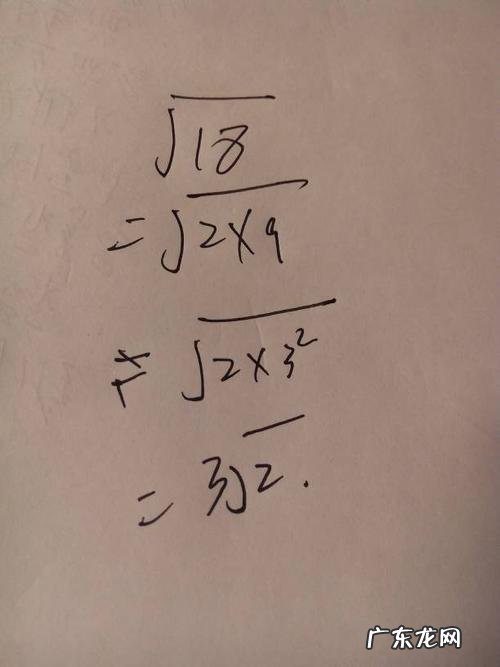 √18
=√2×9
=√2×3²
=3√2.
广东龙网